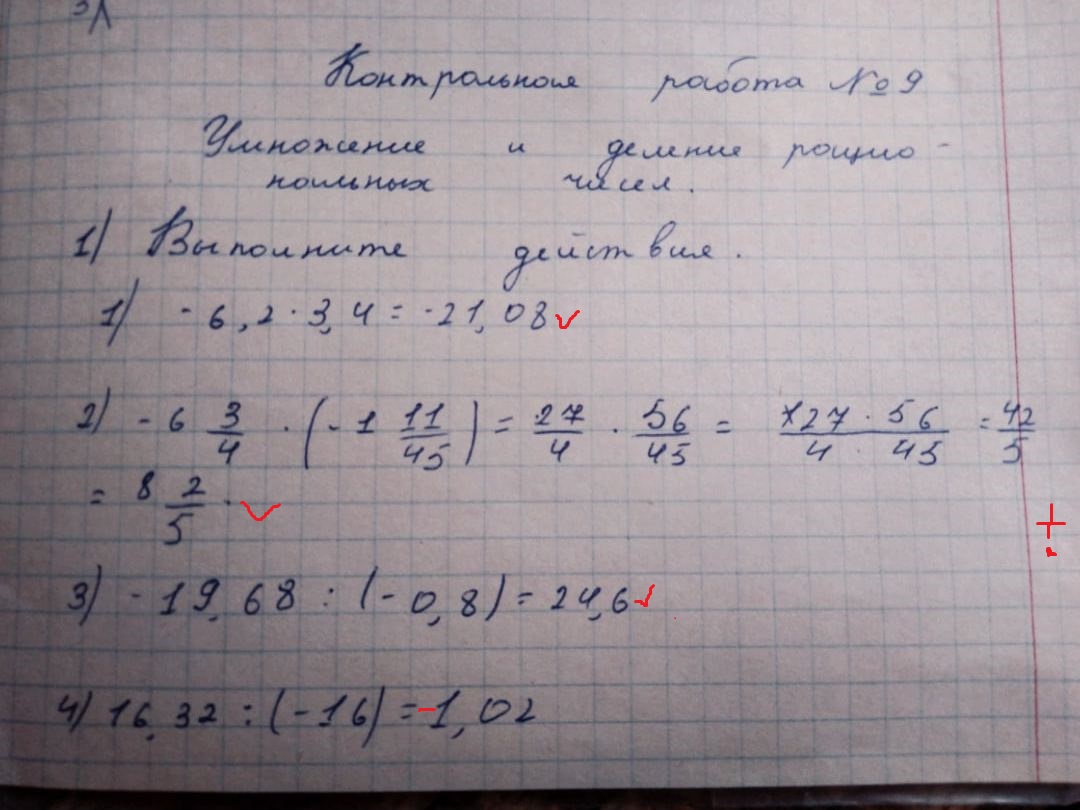 Контрольная работа № 9
Умножение и деление рацио-
нальных чисел.
1) Выполните действия.
1) - 6,2 · 3,4 = -21,08 ✓
2) - 6 3/4 · (- 1 11/45) = 27/4 · 56/45 = 27 · 56/4 · 45 = 42/5
= 8 2/5. ✓
+.
3) - 19,68 : (- 0,8) = 24,6 ✓
4) 16,32 : (-16) = -1,02